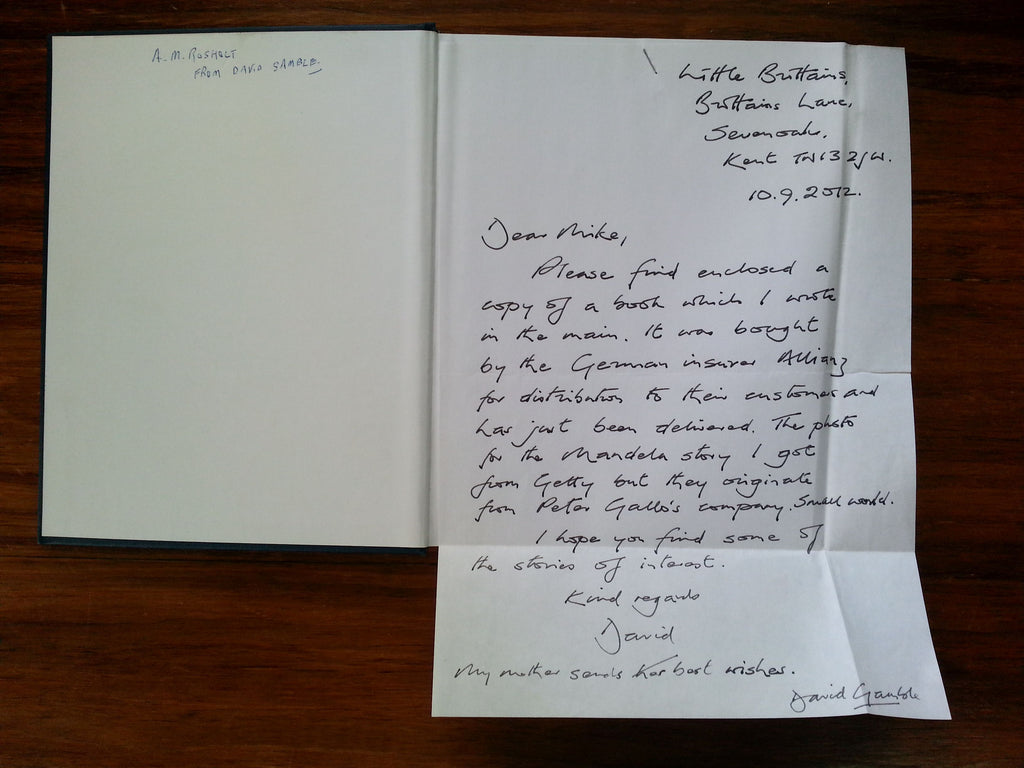 A.M. ROSHOLT
FROM DAVID GAMBLE.
Little Brittains,
Brittains Lane,
Sevenoaks,
Kent TN13 2JW.
10.9.2012.
Dear Mike,
Please find enclosed a
copy of a book which I wrote
in the main. It was bought
by the German insurer Allianz
for distribution to their customers and
has just been delivered. The photo
for the Mandela story I got
from Getty but they originate
from Peter Gallo's company. Small world.
I hope you find some of
the stories of interest.
Kind regards
David
My mother sends her best wishes.
David Gamble